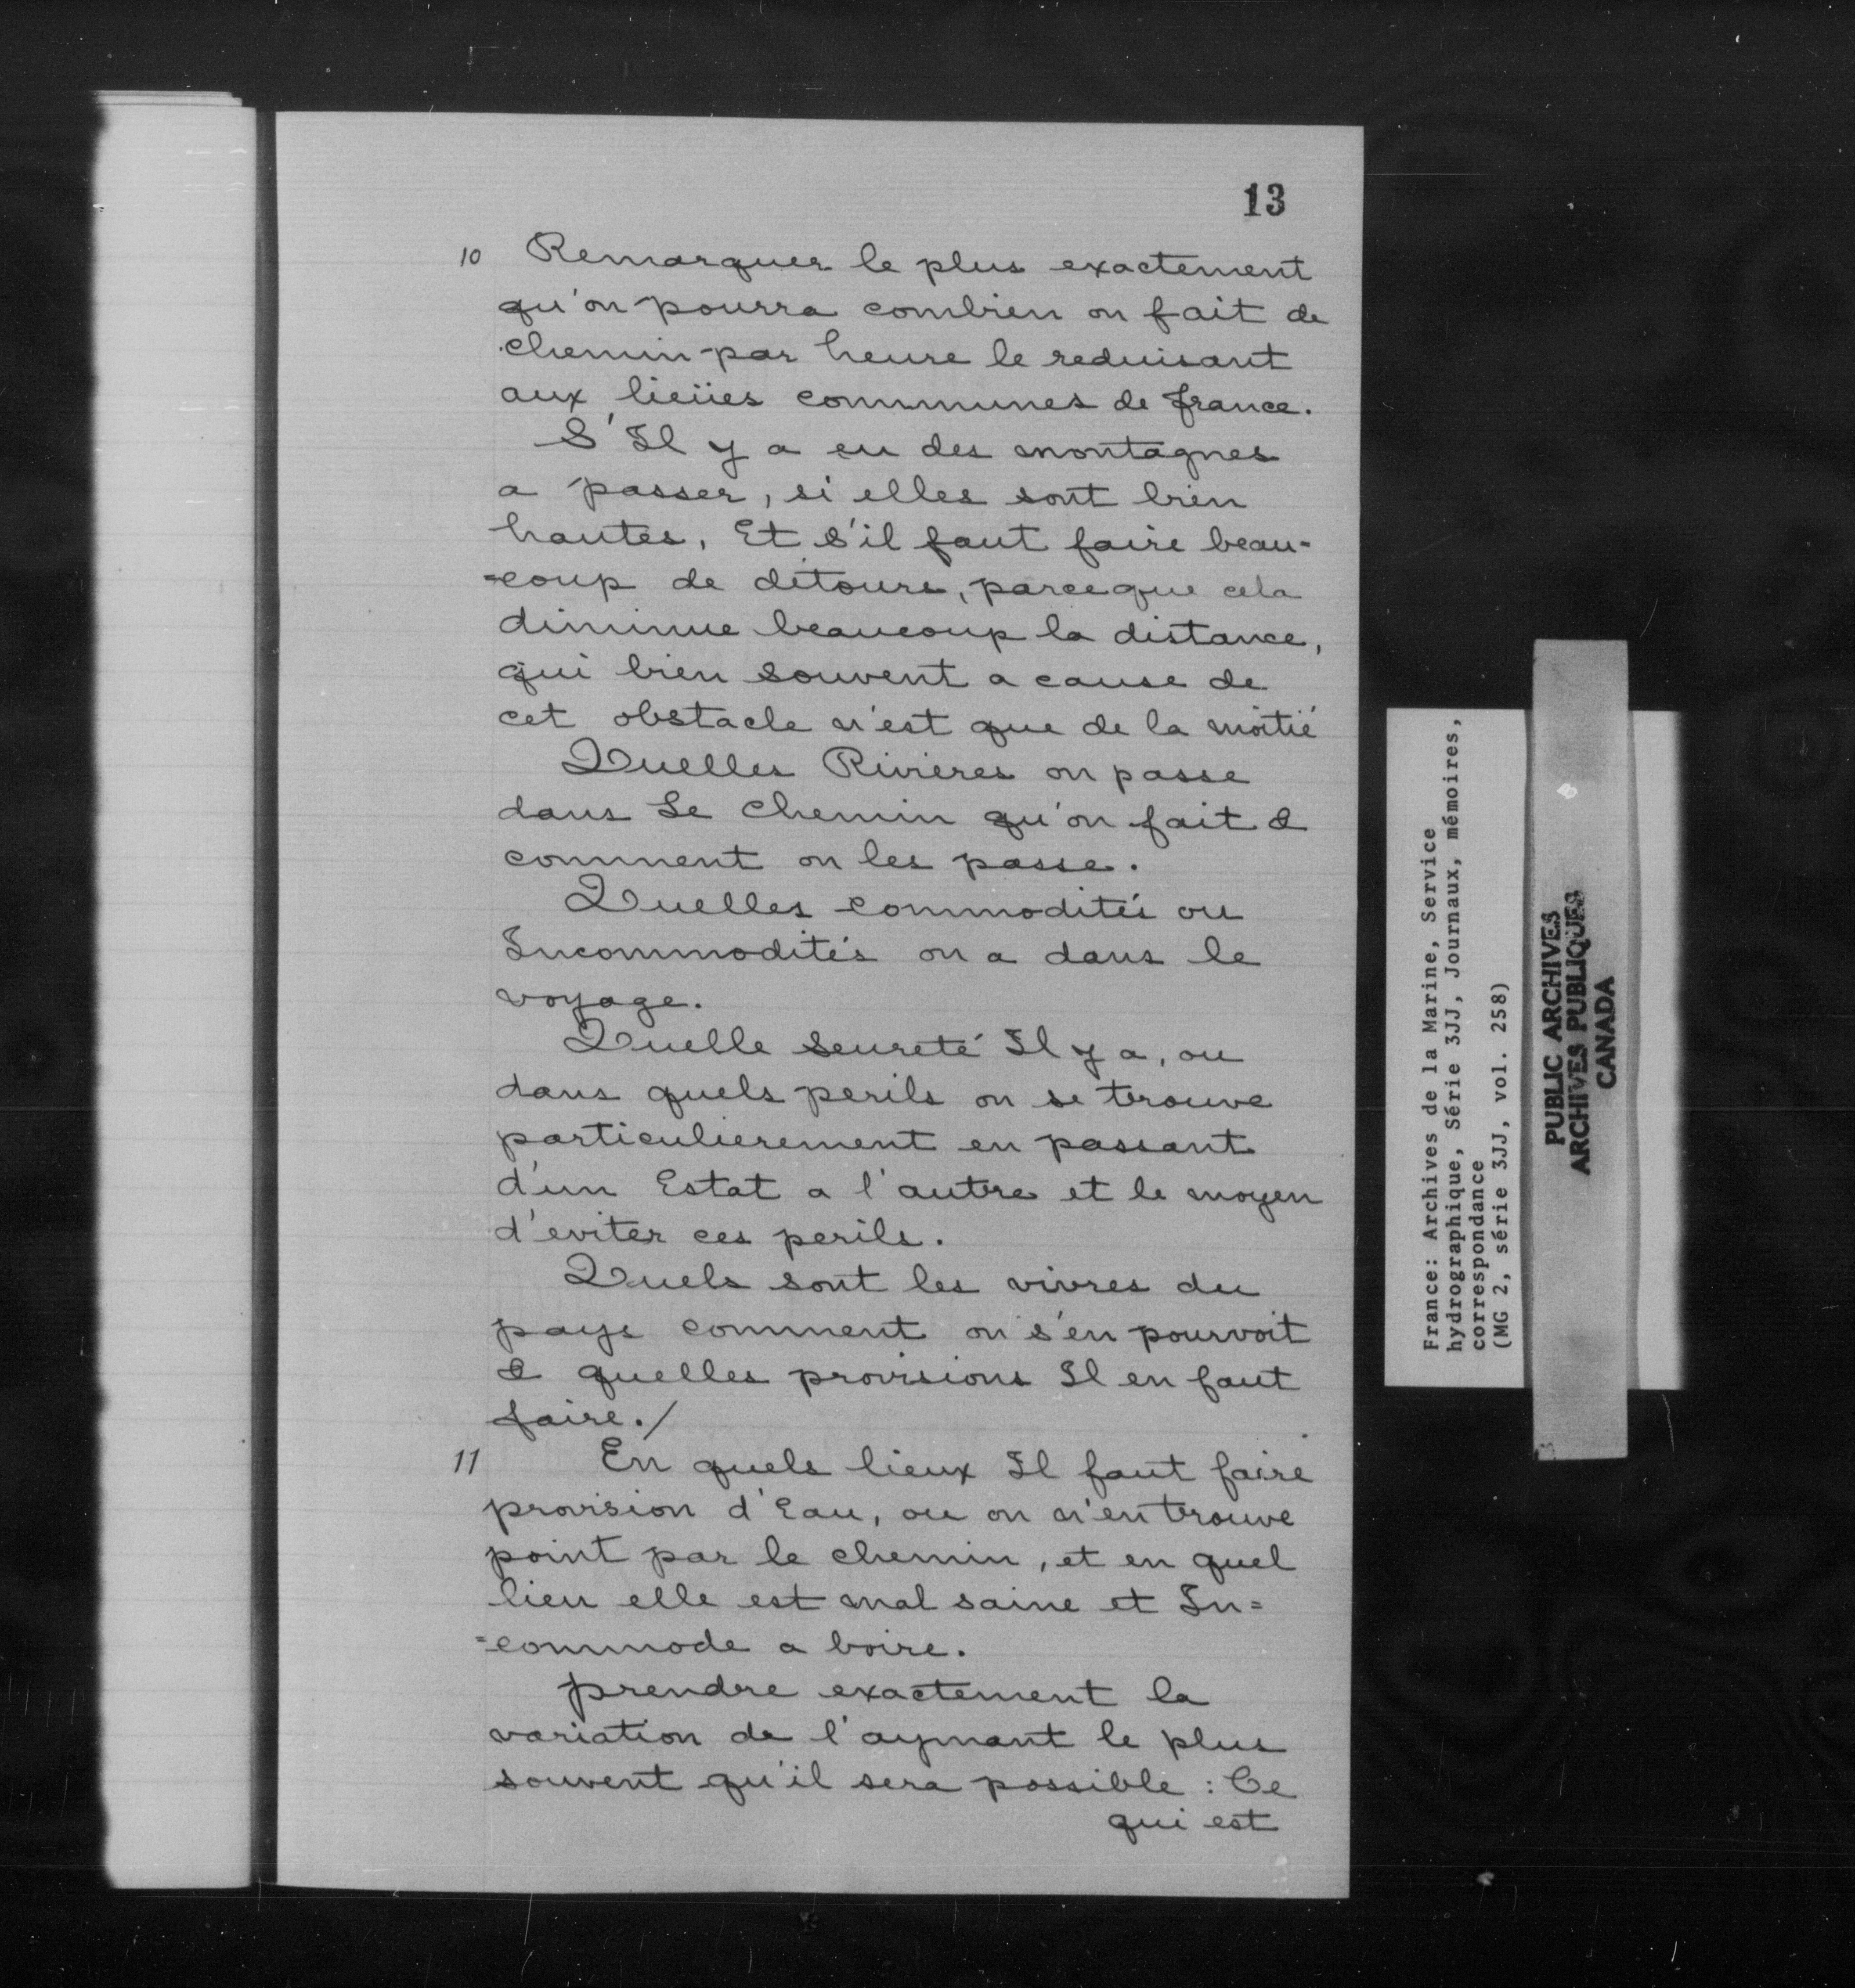 13
10 Remarquer le plus exactement
qu'on pourra combien on fait de
chemin par heure le reduisant
aux lieües communes de france.
S'Il y a eu des montagnes
a passer, si elles sont bien
hautes, Et s'il faut faire beau-
=coup de détours, parceque cela
diminue beaucoup la distance,
qui bien souvent a cause de
cet obstacle n'est que de la moitié
Quelles Rivières on passe
dans Le chemin qu'on fait &
comment on les passe.
Quelles commodités ou
Incommodités on a dans le
voyage.
Quelle seureté Il y a, ou
dans quels perils on se trouve
particulierement en passant
d'un Estat a l'autre et le moyen
d'eviter ces perils.
Quels sont les vivres du
pays comment on s'en pourvoit
& quelles provisions Il en faut
faire./
11 En quels lieux Il faut faire
provision d'Eau, ou on n'en trouve
point par le chemin, et en quel
lieu elle est mal saine et In=
=commode a boire.
prendre exactement la
variation de l'aymant le plus
souvent qu'il sera possible : Ce
qui est
France: Archives de la Marine, Service
hydrographique, Série 3JJ, Journaux, mémoires,
correspondance
(MG 2, série 3JJ, vol. 258)
PUBLIC ARCHIVES
ARCHIVES PUBLIQUES
CANADA